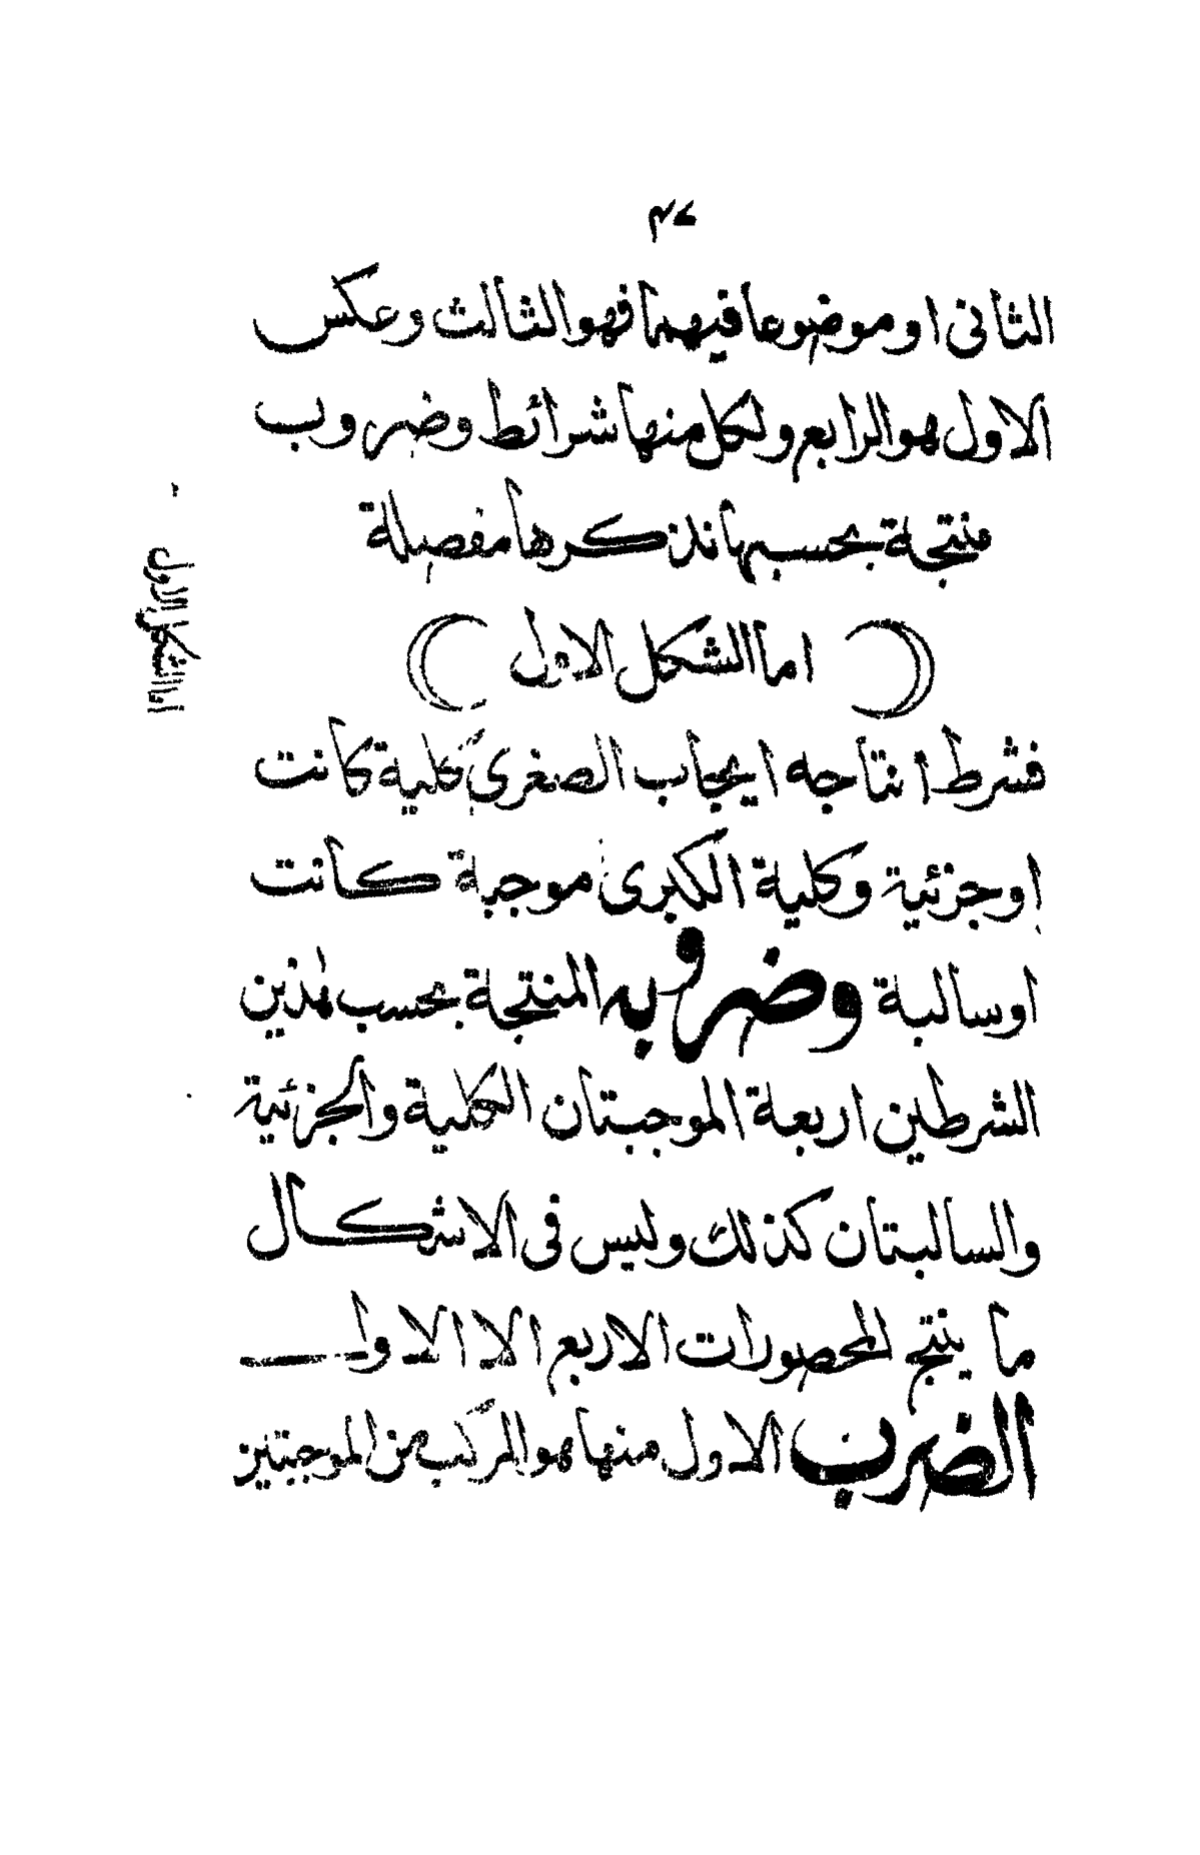 ٤٧
الثانى او موضوعا فيهما فهو الثالث وعكس
الاول هو الرابع ولكل منها شرائط وضروب
منتجة بحسبها نذكرها مفصلة
( اما الشكل الاول )
اما الشكل الاول
فشرط انتاجه ايجاب الصغرى كلية كانت
او جزئية وكلية الكبرى موجبة كانت
او سالبة وضروبه المنتجة بحسب لهذين
الشرطين اربعة الموجبتان الكلية والجزئية
والسالبتان كذلك وليس فى الاشكال
ما ينتج المحصورات الاربع الا الاول
الضرب الاول منها هو المركب من الموجبتين